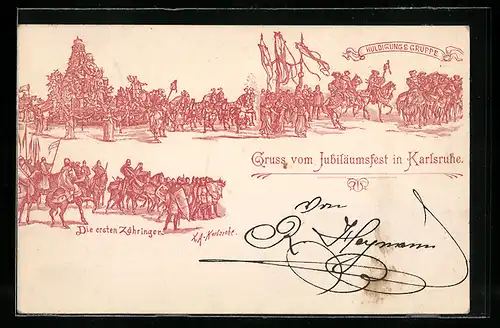 HULDIGUNGS GRUPPE
Gruss vom Jubiläumsfest in Karlsruhe.
Die ersten Zähringer.
Karlsruhe.
Von
R. Heymann